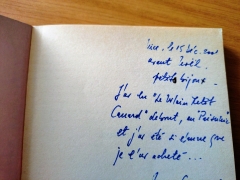 le 15 déc. 
avant Noël.
petits bijoux -
J'ai lu "le Vilain Petit
Canard" debout, au "Printemps"
et j'ai été si émue que
je l'ai acheté...